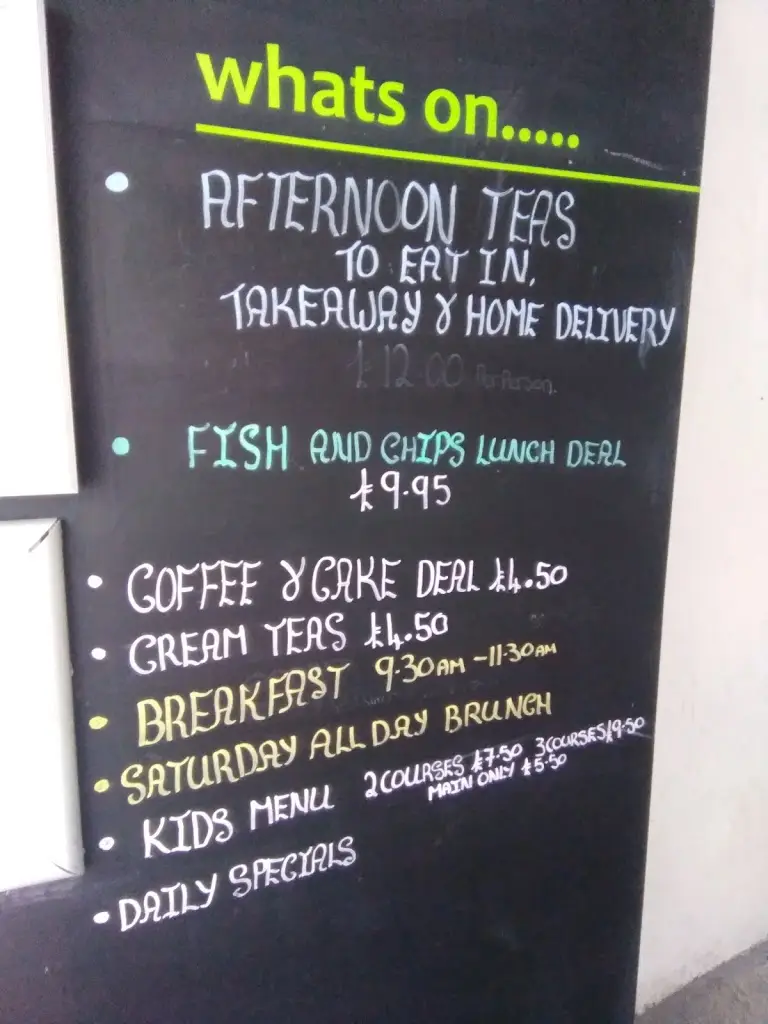 whats on.....
• AFTERNOON TEAS
TO EAT IN,
TAKEAWAY & HOME DELIVERY
£12.00 Per Person.
• FISH AND CHIPS LUNCH DEAL
£9.95
• COFFEE & CAKE DEAL £4.50
• CREAM TEAS £4.50
• BREAKFAST 9.30AM - 11.30AM
• SATURDAY ALL DAY BRUNCH
• KIDS MENU 2 COURSES £7.50 3 COURSES £9.50
MAIN ONLY £5.50
• DAILY SPECIALS